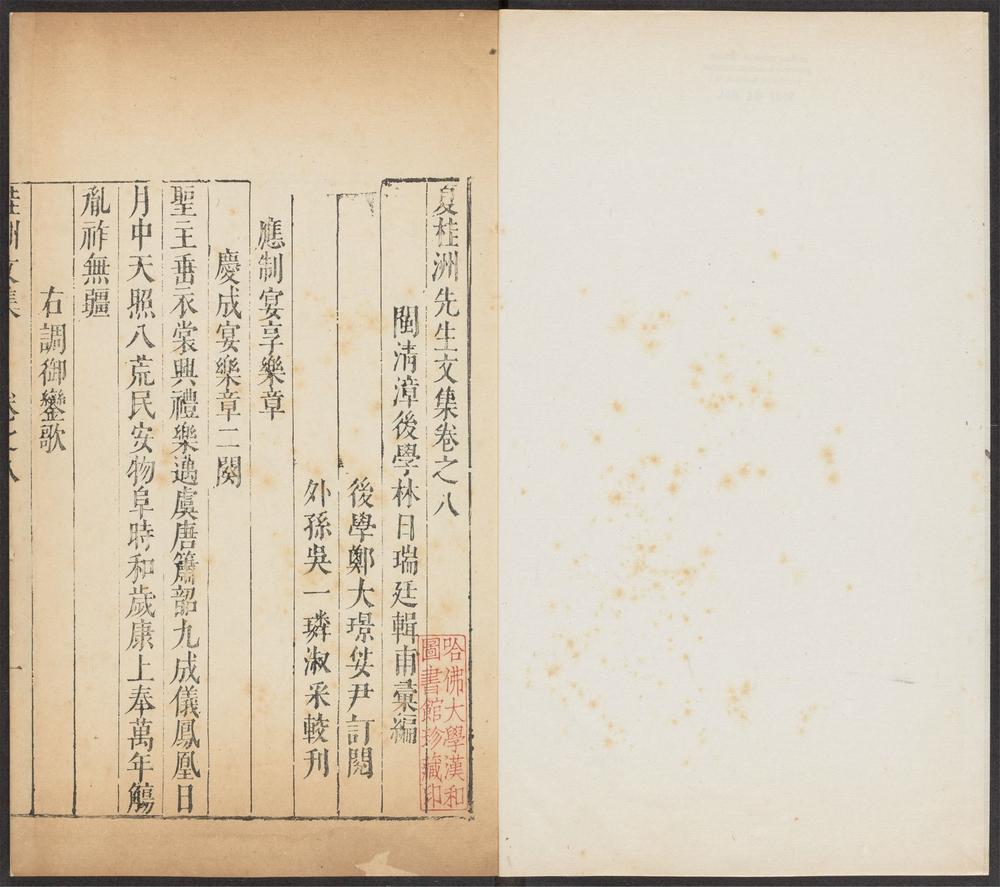 夏桂洲先生文集卷之八
閩清漳後學林日瑞廷輯甫彙編
後學鄭大璟娄尹訂閱
外孫吳一璘淑采較刋
應制宴享樂章
慶成宴樂章二闋
聖主垂衣裳興禮樂邁虞唐簫韶九成儀鳳凰日
月中天照八荒民安物阜時和歲康上奉萬年觴
胤祚無疆
右調御鑾歌
桂洲文集
卷之八
一
哈佛大學漢和
圖書館珍藏印